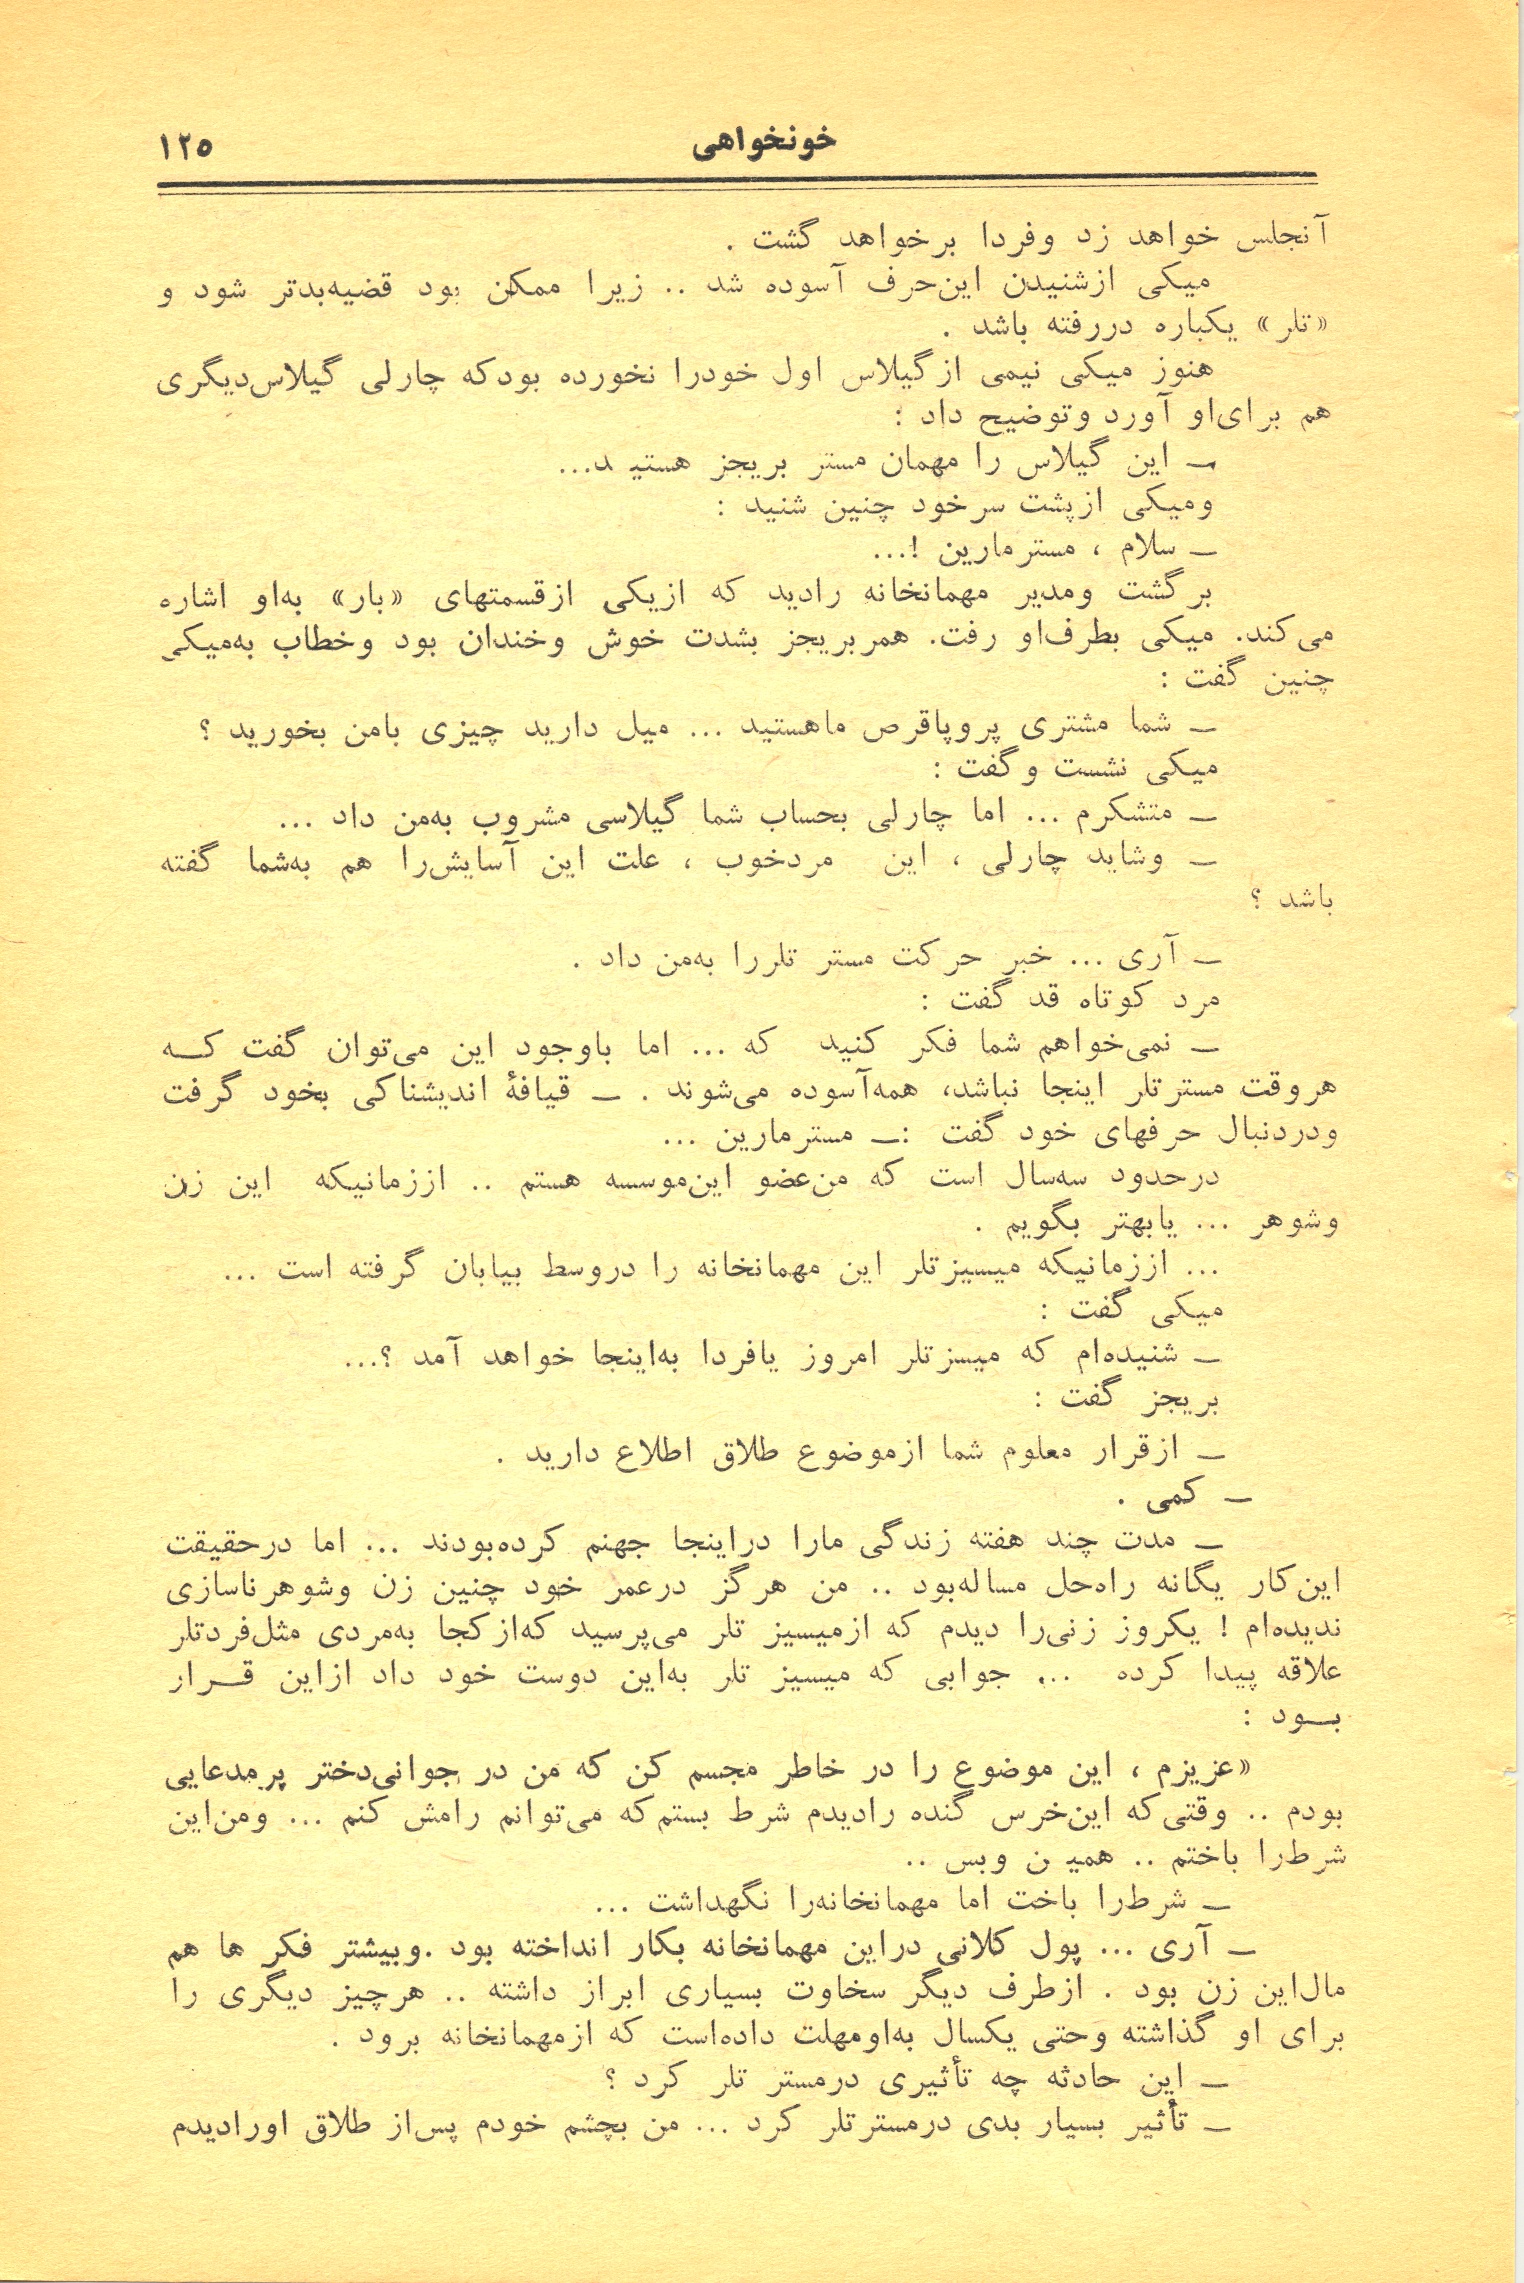 خونخواهی ۱۲۵
آنجلس خواهد زد وفردا برخواهد گشت .
میکی ازشنیدن این‌حرف آسوده شد .. زیرا ممکن بود قضیه‌بدتر شود و
«تلر» یکباره دررفته باشد .
هنوز میکی نیمی ازگیلاس اول خودرا نخورده بودکه چارلی گیلاس‌دیگری
هم برای‌او آورد وتوضیح داد :
ــ این گیلاس را مهمان مستر بریجز هستید...
ومیکی ازپشت سرخود چنین شنید :
ــ سلام ، مسترمارین !...
برگشت ومدیر مهمانخانه رادید که ازیکی ازقسمتهای «بار» به‌او اشاره
می‌کند. میکی بطرف‌او رفت. همربریجز بشدت خوش وخندان بود وخطاب به‌میکی
چنین گفت :
ــ شما مشتری پروپاقرص ماهستید ... میل دارید چیزی بامن بخورید ؟
میکی نشست وگفت :
ــ متشکرم ... اما چارلی بحساب شما گیلاسی مشروب به‌من داد ...
ــ وشاید چارلی ، این مردخوب ، علت این آسایش‌را هم به‌شما گفته
باشد ؟
ــ آری ... خبر حرکت مستر تلررا به‌من داد .
مرد کوتاه قد گفت :
ــ نمی‌خواهم شما فکر کنید که ... اما باوجود این می‌توان گفت کــه
هروقت مسترتلر اینجا نباشد، همه‌آسوده می‌شوند . ــ قیافهٔ اندیشناکی بخود گرفت
ودردنبال حرفهای خود گفت :ــ مسترمارین ...
درحدود سه‌سال است که من‌عضو این‌موسسه هستم .. اززمانیکه این زن
وشوهر ... یابهتر بگویم .
... اززمانیکه میسیزتلر این مهمانخانه را دروسط بیابان گرفته است ...
میکی گفت :
ــ شنیده‌ام که میسزتلر امروز یافردا به‌اینجا خواهد آمد ؟...
بریجز گفت :
ــ ازقرار معلوم شما ازموضوع طلاق اطلاع دارید .
ــ کمی .
ــ مدت چند هفته زندگی مارا دراینجا جهنم کرده‌بودند ... اما درحقیقت
این‌کار یگانه راه‌حل مساله‌بود .. من هرگز درعمر خود چنین زن وشوهرناسازی
ندیده‌ام ! یکروز زنی‌را دیدم که ازمیسیز تلر می‌پرسید که‌ازکجا به‌مردی مثل‌فردتلر
علاقه پیدا کرده ... جوابی که میسیز تلر به‌این دوست خود داد ازاین قــرار
بــود :
«عزیزم ، این موضوع را در خاطر مجسم کن که من در جوانی‌دختر پرمدعایی
بودم .. وقتی‌که این‌خرس گنده رادیدم شرط بستم‌که می‌توانم رامش کنم ... ومن‌این
شرط‌را باختم .. همین وبس ..
ــ شرط‌را باخت اما مهمانخانه‌را نگهداشت ...
ــ آری ... پول کلانی دراین مهمانخانه بکار انداخته بود .وبیشتر فکر ها هم
مال‌این زن بود . ازطرف دیگر سخاوت بسیاری ابراز داشته .. هرچیز دیگری را
برای او گذاشته وحتی یکسال به‌اومهلت داده‌است که ازمهمانخانه برود .
ــ این حادثه چه تأثیری درمستر تلر کرد ؟
ــ تأثیر بسیار بدی درمسترتلر کرد ... من بچشم خودم پس‌از طلاق اورادیدم